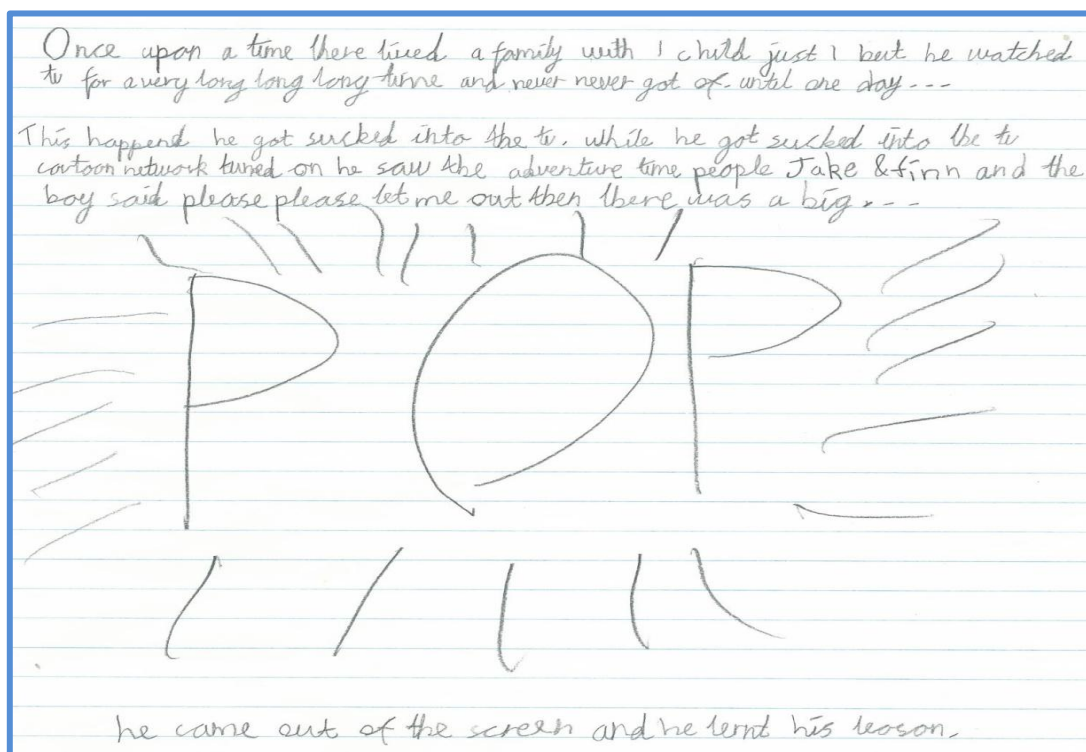 Once upon a time there lived a family with 1 child just 1 but he watched
tv for a very long long long time and never never got of. until one day---
This happend he got sucked into the tv. while he got sucked into the tv
cartoon network tuned on he saw the adventure time people Jake & finn and the
boy said please please let me out then there was a big.---
POP
he came out of the screen and he lernt his leoson.